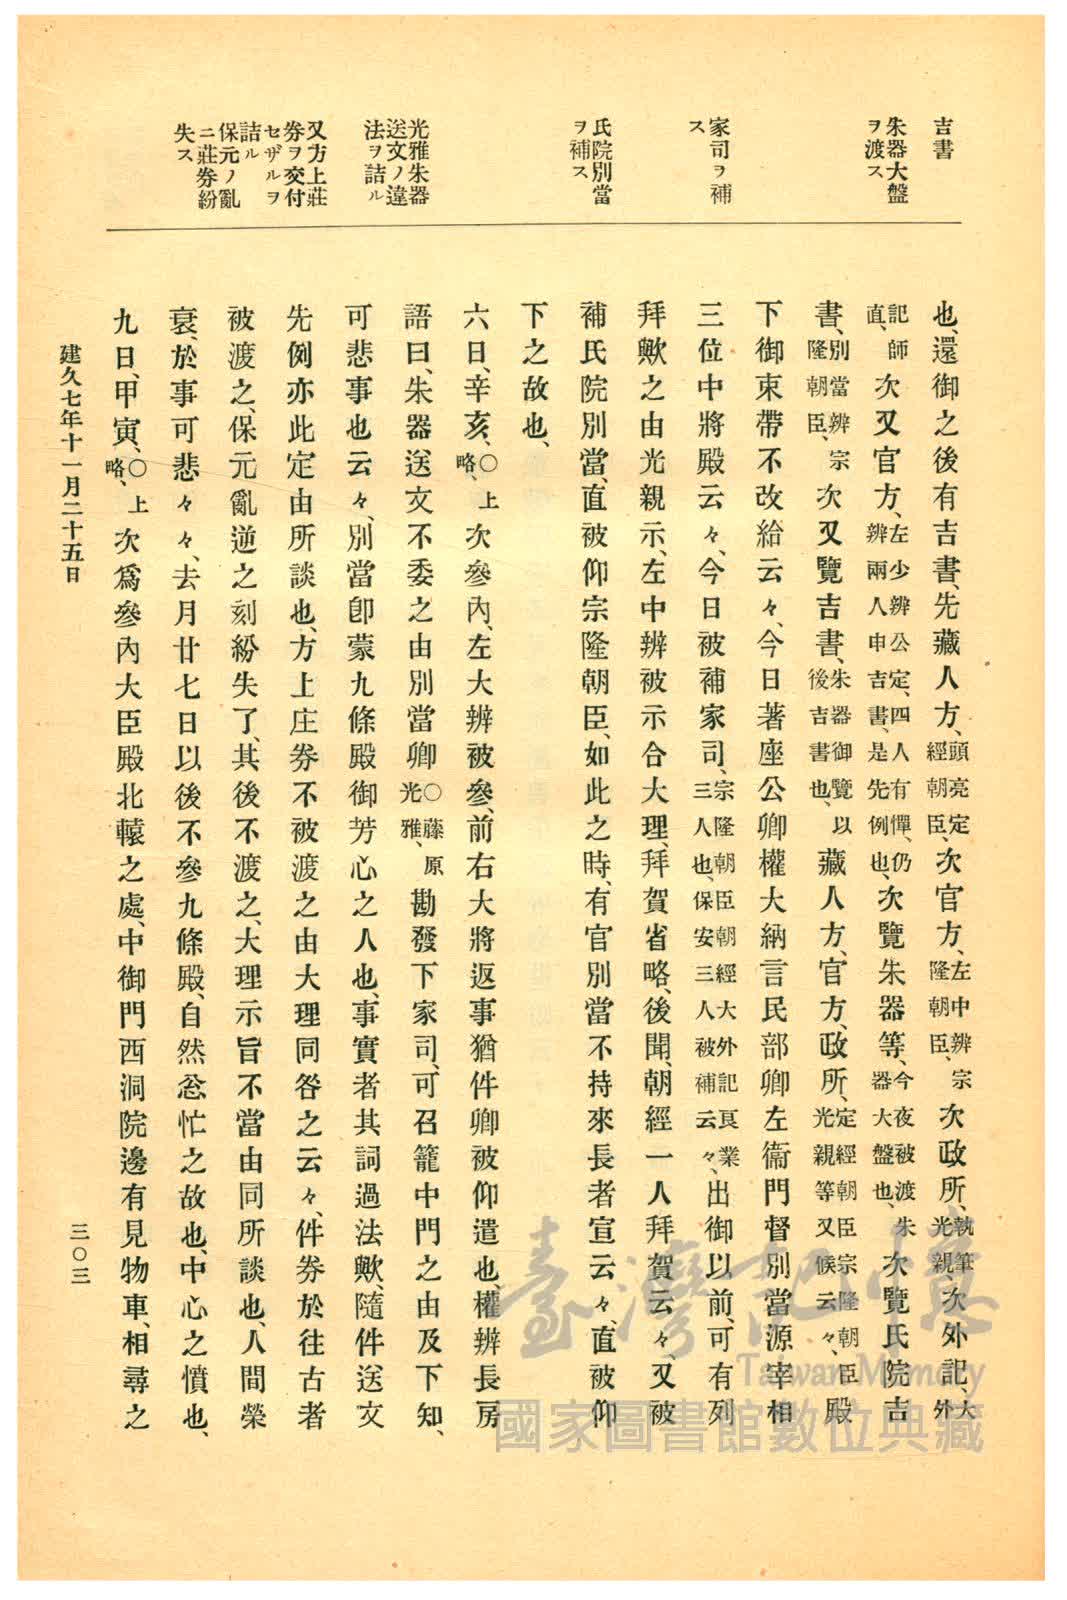 吉書
朱器大盤
ヲ渡ス
家司ヲ補
ス
氏院別當
ヲ補ス
光雅朱器
送文ノ違
法ヲ詰ル
又方上莊
券ヲ交付
セザルヲ
詰ル
保元ノ亂
ニ莊券紛
失ス
也、還御之後有吉書、先藏人方、頭亮定經朝臣、次官方、左中辨宗隆朝臣、次政所、執筆光親、次外記、大外
記師直、次又官方、左少辨公定、四人有憚、仍辨兩人申吉書、是先例也、次覽朱器等、今夜被渡朱器大盤也、次覽氏院吉
書、別當辨宗隆朝臣、次又覽吉書、朱器御覽以後吉書也、藏人方、官方、政所、定經朝臣宗隆朝臣光親等又候云々、殿
下御束帶不改給云々、今日著座公卿權大納言民部卿左衞門督別當源宰相
三位中將殿云々、今日被補家司、宗隆朝臣朝經大外記良業三人也、保安三人被補云々、出御以前、可有列
拜歟之由光親示、左中辨被示合大理、拜賀省略、後聞、朝經一人拜賀云々、又被
補氏院別當、直被仰宗隆朝臣、如此之時、有官別當不持來長者宣云々、直被仰
下之故也、
六日、辛亥、○上略、次參內、左大辨被參、前右大將返事猶件卿被仰遣也、權辨長房
語曰、朱器送文不委之由別當卿○藤原光雅、勘發下家司、可召籠中門之由及下知、
可悲事也云々、別當卽蒙九條殿御芳心之人也、事實者其詞過法歟、隨件送文
先例亦此定由所談也、方上庄券不被渡之由大理同咎之云々、件券於往古者
被渡之、保元亂逆之刻紛失了、其後不渡之、大理示旨不當由同所談也、人間榮
衰、於事可悲々々、去月廿七日以後不參九條殿、自然忩忙之故也、中心之憤也、
九日、甲寅、○上略、次爲參內大臣殿北轅之處、中御門西洞院邊有見物車、相尋之
建久七年十一月二十五日
三〇三
臺灣記憶
Taiwan Memory
國家圖書館數位典藏